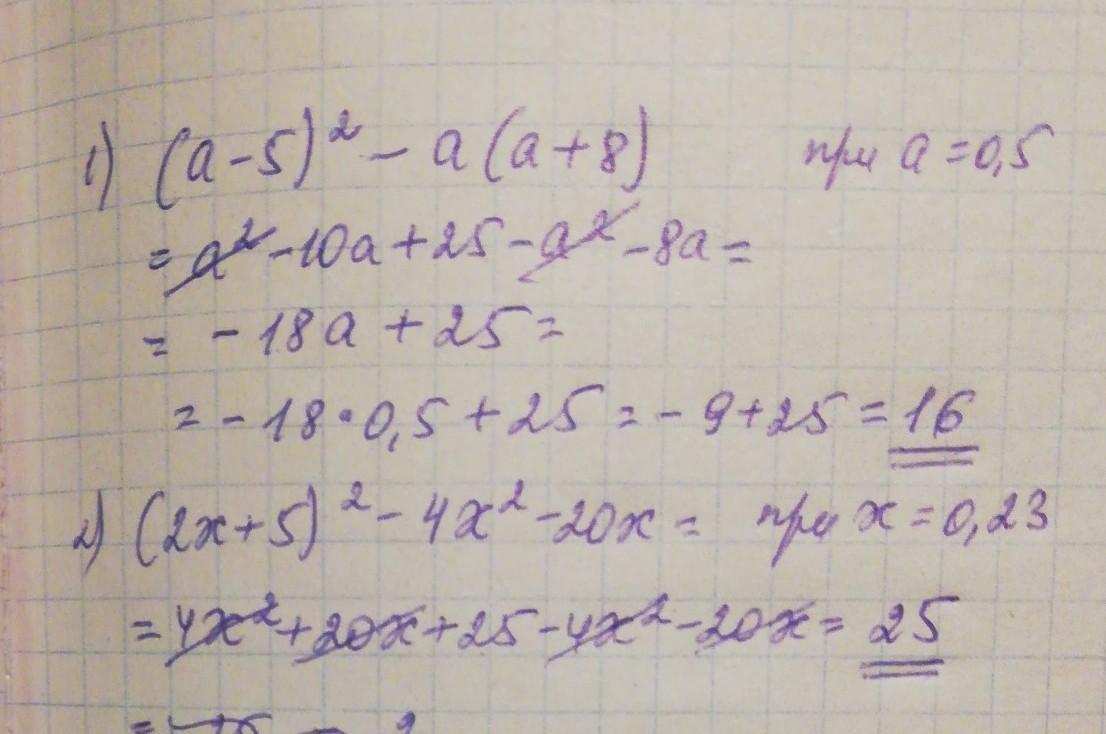 1) (a-5)² - a(a+8) при a=0,5
= a² -10a+25-a² -8a=
= -18a+25=
= -18·0,5+25=-9+25=16
2) (2x+5)² - 4x² -20x= при x=0,23
=4x²+20x+25-4x²-20x= 25